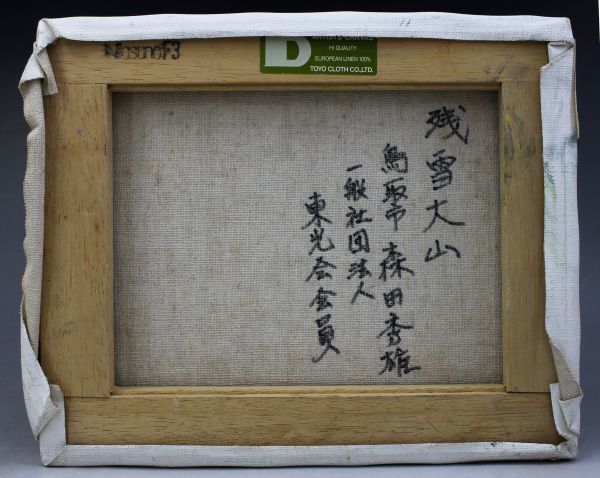 Masuno F3
B
ARTISTS CANVAS
HI QUALITY
EUROPEAN LINEN 100%
TOYO CLOTH CO.,LTD.
残雪大山
鳥取市 森田秀雄
一般社団法人
東光会会員